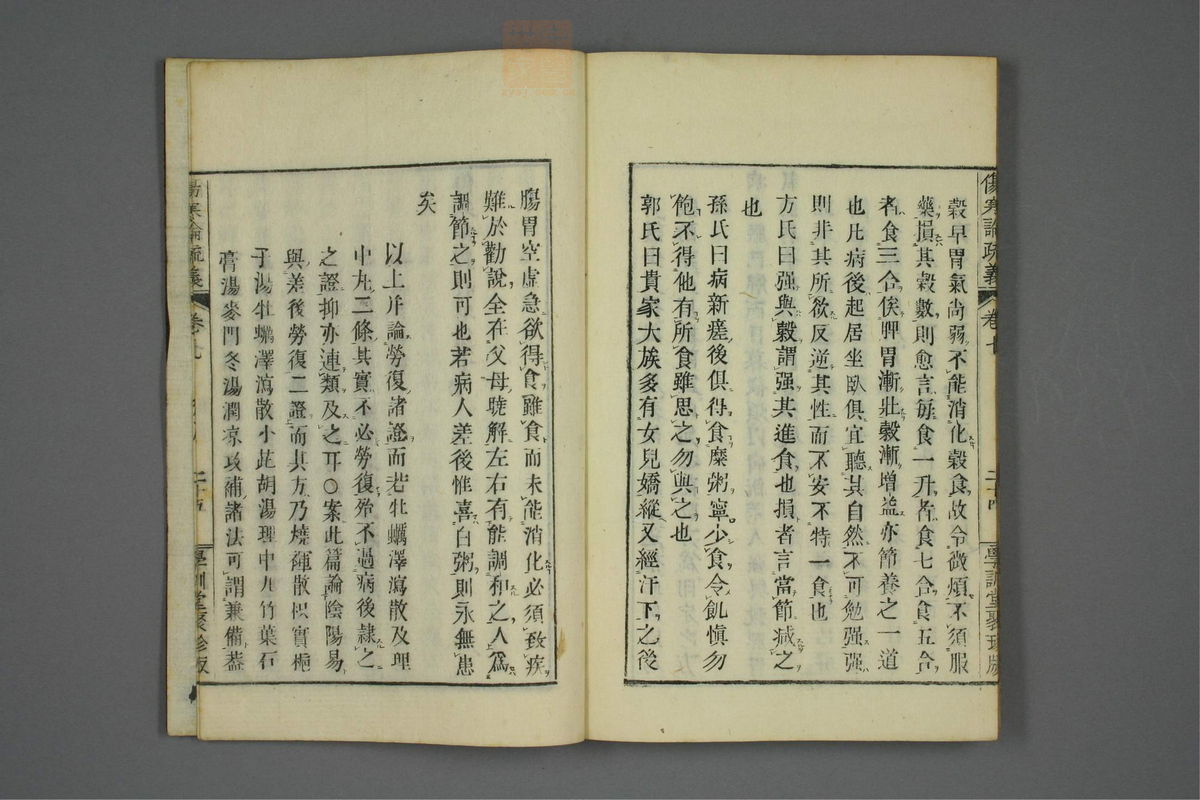 傷寒論疏義
卷七
二十四
學訓堂聚珍版
穀早胃氣尚弱不能消化穀食故令微煩不須服
藥損其穀數則愈言每食一升者食七合食五合
者食三合俟脾胃漸壯穀漸增益亦節養之一道
也凡病後起居坐臥俱宜聽其自然不可勉强强
則非其所欲反逆其性而不安不特一食也
方氏曰强與穀謂强其進食也損者言當節減之
也
孫氏曰病新瘥後俱得食糜粥寧少食令飢愼勿
飽不得他有所食雖思之勿與之也
郭氏曰貴家大族多有女兒嬌縱又經汗下之後
腸胃空虛急欲得食雖食而未能消化必須致疾
難於勸說全在父母曉解左右有能調和之人爲
調節之則可也若病人差後惟喜白粥則永無患
矣
以上幷論勞復諸證而若牡蠣澤瀉散及理
中丸二條其實不必勞復殆不過病後隷之
之證抑亦連類及之耳○案此篇論陰陽易
與差後勞復二證而其方乃燒褌散枳實梔
子湯牡蠣澤瀉散小茈胡湯理中丸竹葉石
膏湯麥門冬湯潤凉攻補諸法可謂兼備葢
傷寒論疏義
卷七
二十五
學訓堂聚珍版